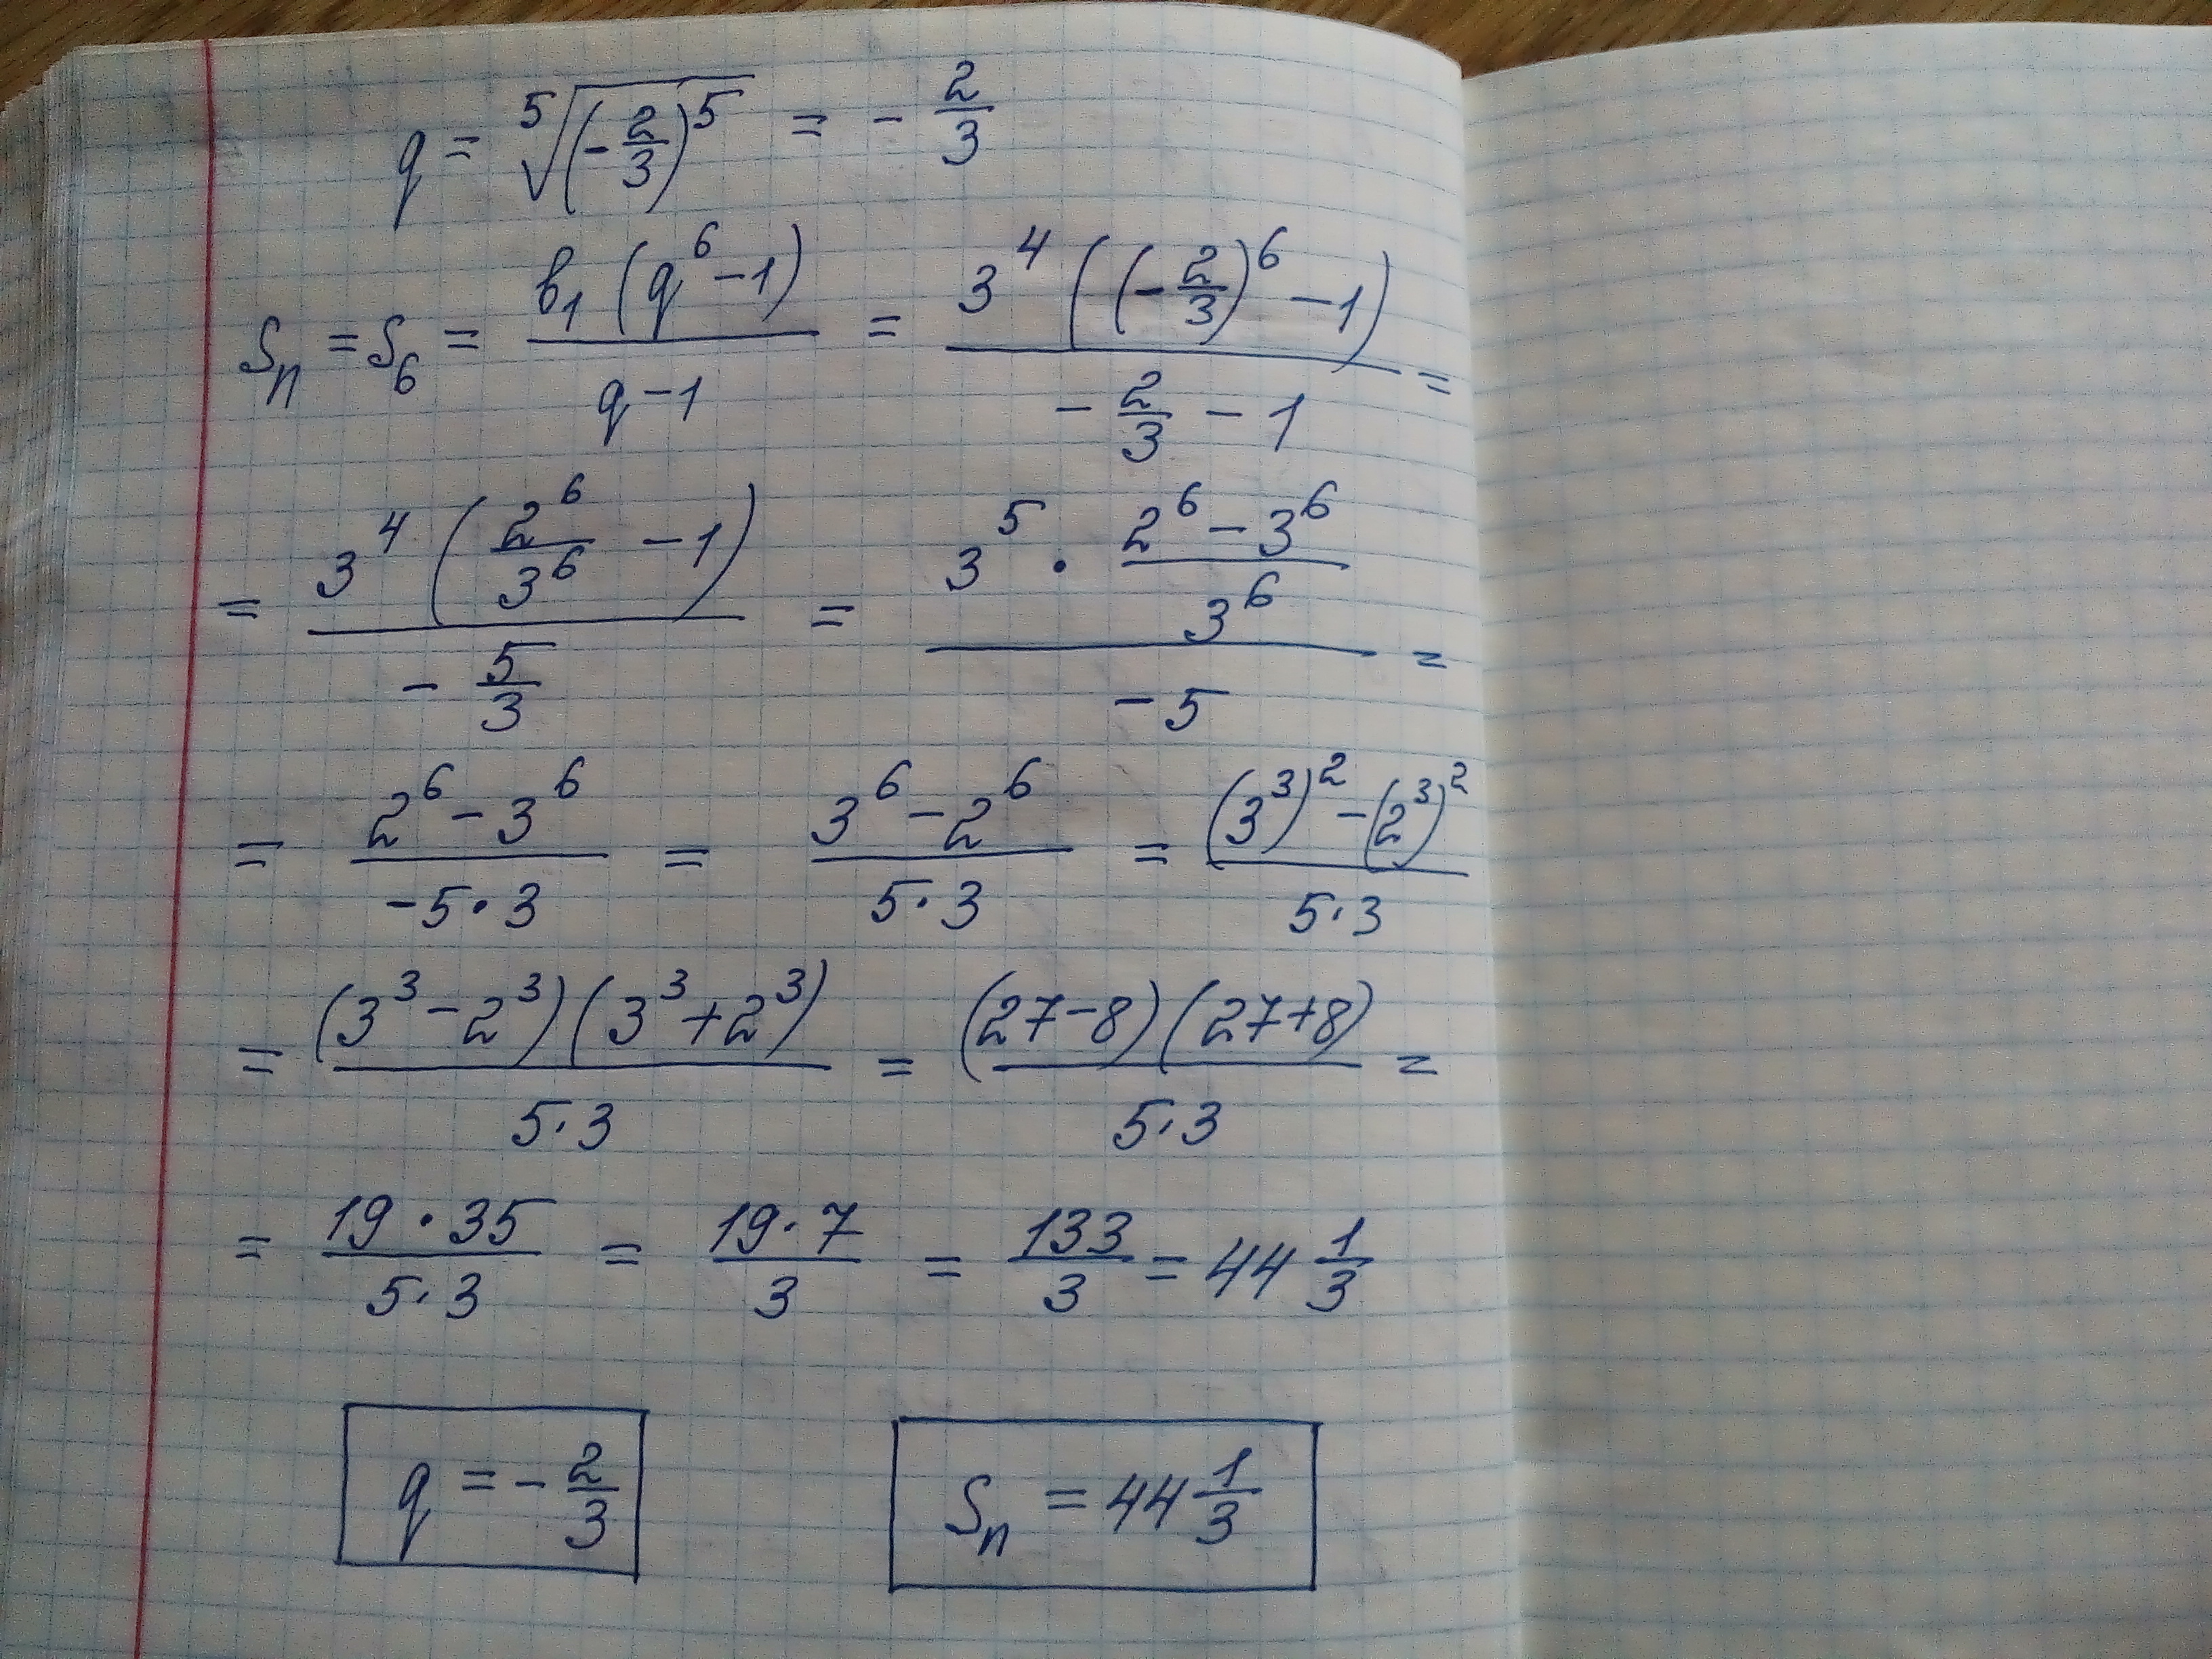 q = ⁵√((-2/3)^5) = -2/3
Sn = S6 = b1(q^6-1)/(q-1) = 3^4((-2/3)^6-1)/(-2/3-1) =
= 3^4(2^6/3^6-1)/(-5/3) = (3^5 · (2^6-3^6)/3^6)/(-5) =
= (2^6-3^6)/(-5·3) = (3^6-2^6)/(5·3) = ((3^3)^2-(2^3)^2)/(5·3)
= (3^3-2^3)(3^3+2^3)/(5·3) = (27-8)(27+8)/(5·3) =
= (19·35)/(5·3) = (19·7)/3 = 133/3 = 44 1/3
q = -2/3
Sn = 44 1/3